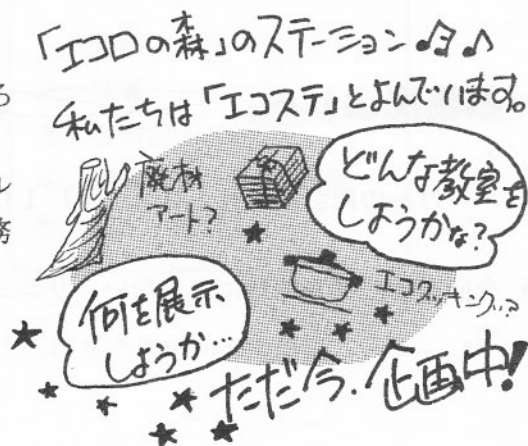 「エコロの森」のステーション♫♪
私たちは「エコステ」とよんでいます。
廃材
アート?
どんな教室を
しようかな?
エコクッキング??
何を展示
しようか…
ただ今、企画中!